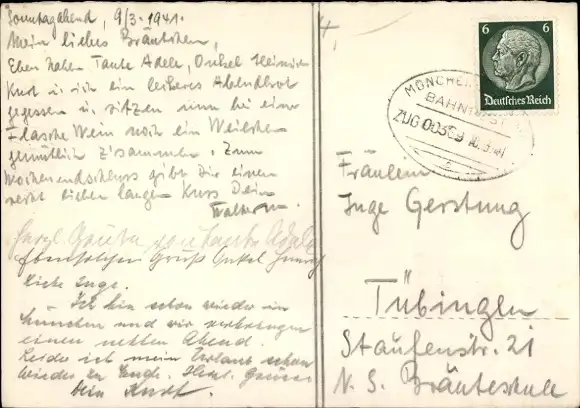 Sonntagabend, 9/3. 1941.
Mein liebes Bräutchen,
Eben haben Tante Adele, Onkel Heinrich
Kurt u. ich ein leckeres Abendbrot
gegessen u. sitzen nun bei einer
Flasche Wein noch ein Weilchen
gemütlich zusammen. Zum
Wochenendschluss gibt Dir einen
recht lieben langen Kuss Dein
Walter
Herzl. Grüße von Tante Adele
Ebensolchen Gruß Onkel Heinrich
Liebe Inge.
Ich bin schon wieder in
München und wir verbringen
einen netten Abend.
Leider ist mein Urlaub schon
wieder zu Ende. Herzl. Grüsse
Dein Kurt.
6 6
Deutsches Reich
MÜNCHEN
BAHNPOST
ZUG 00359 10.3.41
Fräulein
Inge Gerstung
Tübingen
Staufenstr. 21
N. S. Bräuteschule